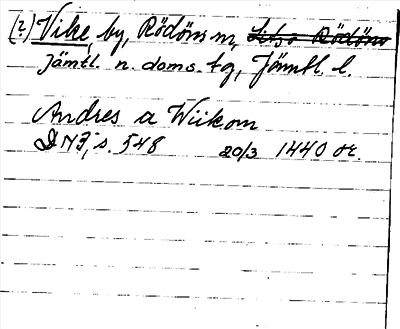 (?) Vike, by, Rödöns sn,
Jämtl. n. doms. tg, Jämtl. l.
Andres a Wiikom
DN 3, s. 548 20/3 1440 or.